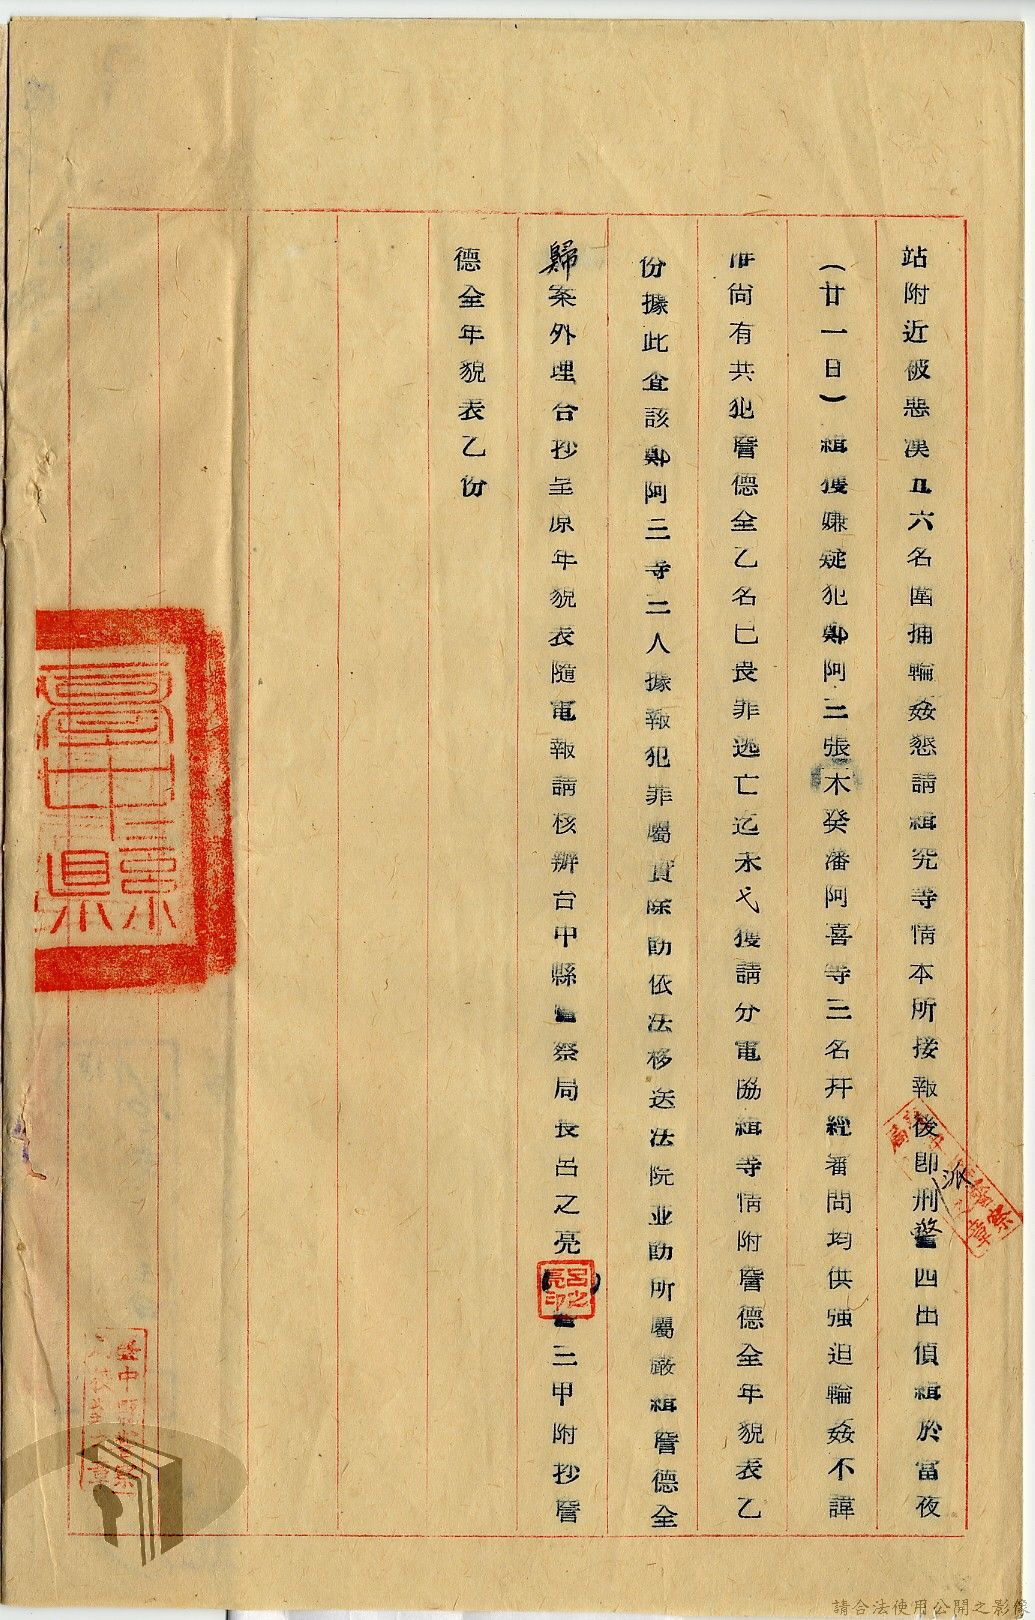 站附近被惡漢五六名圍捕輪姦懇請緝究等情本所接報後即派刑警四出偵緝於當夜
（廿一日）緝獲嫌疑犯鄭阿三張木癸潘阿喜等三名并經審問均供強迫輪姦不諱
惟尚有共犯詹德全乙名已畏罪逃亡迄未弋獲請分電協緝等情附詹德全年貌表乙
份據此查該鄭阿三等三人據報犯罪屬實除飭依法移送法院並飭所屬嚴緝詹德全
歸案外理合抄呈原年貌表隨電報請核辦台中縣警察局長呂之亮（ ）警三甲附抄詹
德全年貌表乙份
呂之亮印
臺中縣
請合法使用公開之影像